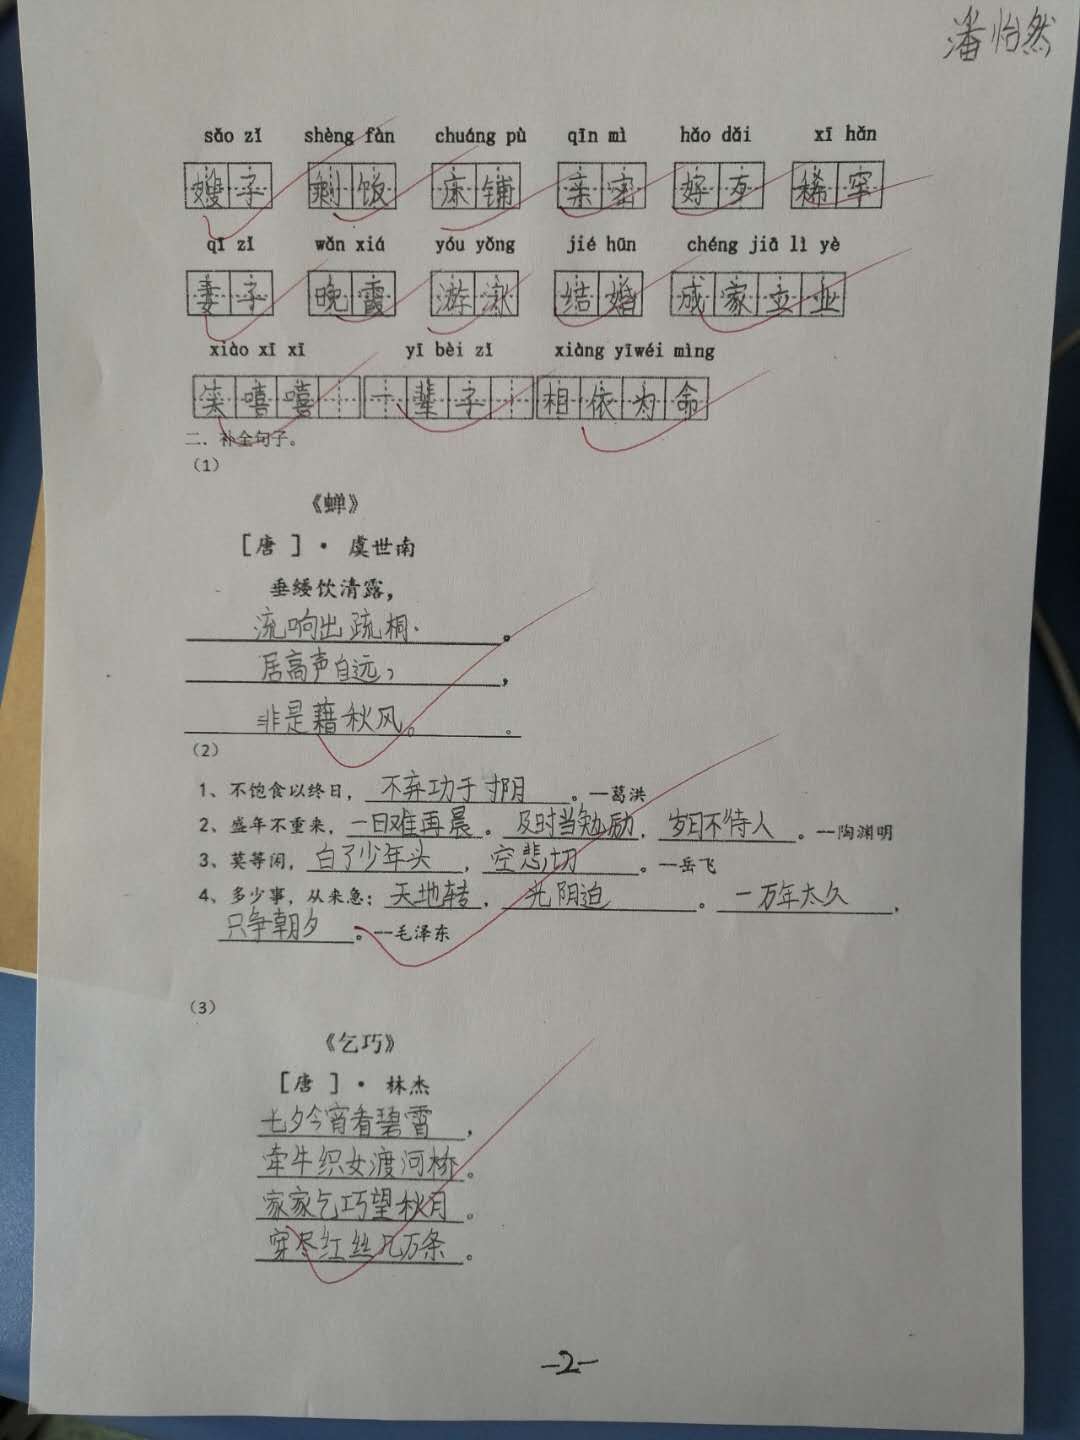 潘怡然
sǎo zǐ shèng fàn chuáng pù qīn mì hǎo dǎi xī hǎn
嫂子 剩饭 床铺 亲密 好歹 稀罕
qī zǐ wǎn xiá yóu yǒng jié hūn chéng jiā lì yè
妻子 晚霞 游泳 结婚 成家立业
xiào xī xī yī bèi zǐ xiàng yīwéi mìng
笑嘻嘻 一辈子 相依为命
二．补全句子。
（1）
《蝉》
［唐 ］· 虞世南
垂緌饮清露，
流响出疏桐.。
居高声自远，，
非是藉秋风。。
（2）
1、不饱食以终日，不弃功于寸阴。—葛洪
2、盛年不重来，一日难再晨。及时当勉励，岁月不待人。--陶渊明
3、莫等闲，白了少年头，空悲切。—岳飞
4、多少事，从来急；天地转，光阴迫。一万年太久，
只争朝夕。--毛泽东
（3）
《乞巧》
［唐 ］· 林杰
七夕今宵看碧霄，
牵牛织女渡河桥。
家家乞巧望秋月。
穿尽红丝几万条。
-2-